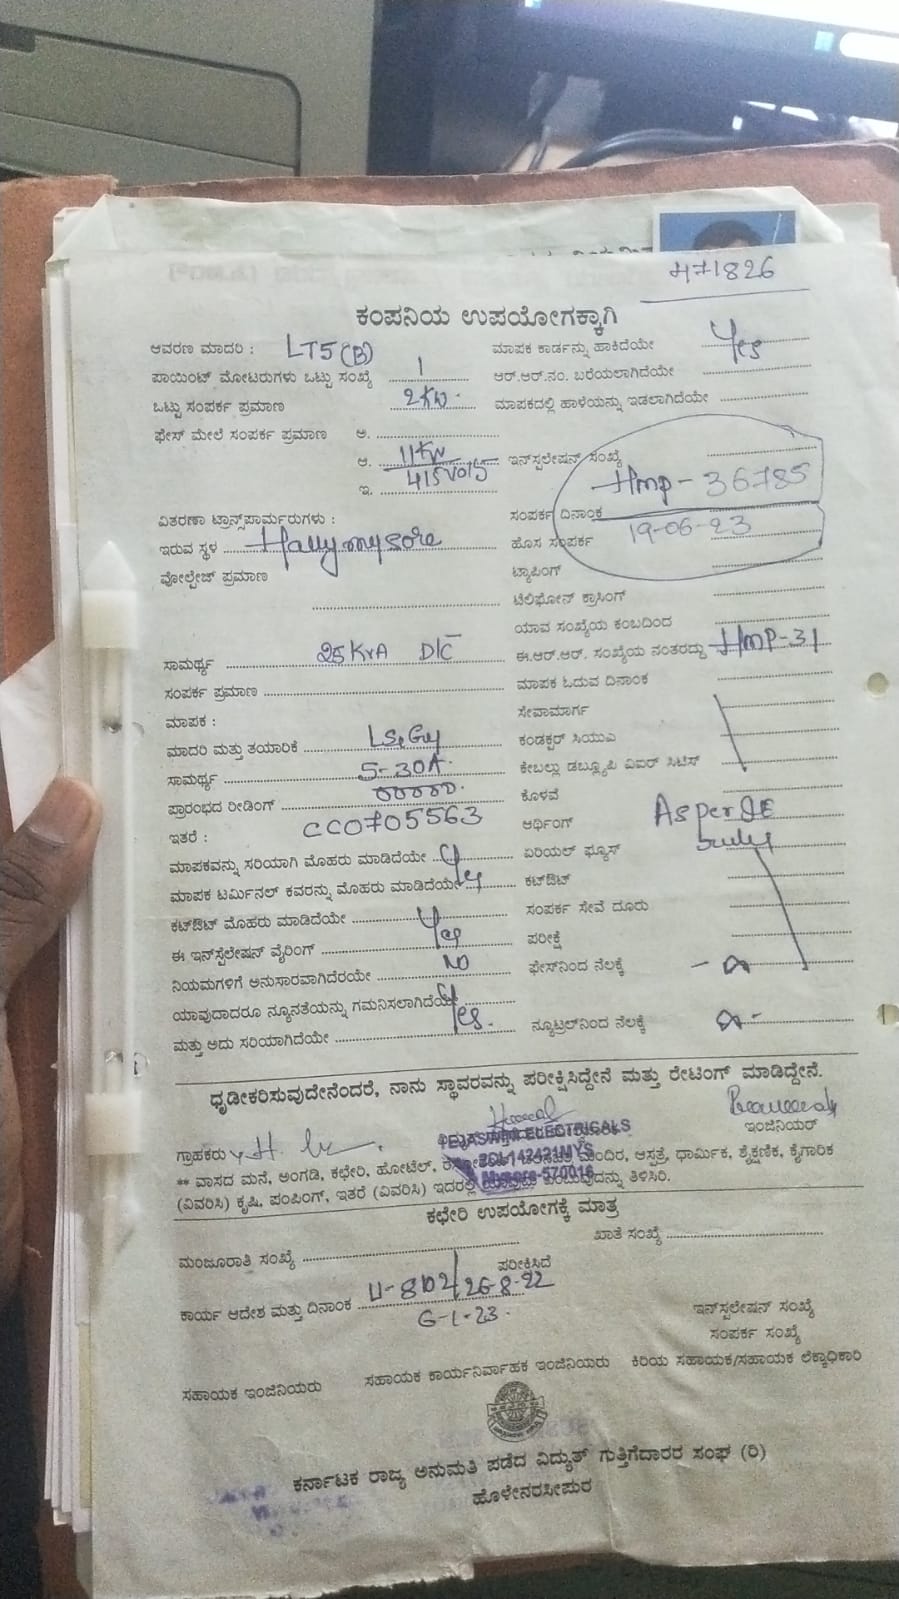 471826
ಕಂಪನಿಯ ಉಪಯೋಗಕ್ಕಾಗಿ
ಆವರಣ ಮಾದರಿ : LT5(B) ಮಾಪಕ ಕಾರ್ಡನ್ನು ಹಾಕಿದೆಯೇ Yes
ಪಾಯಿಂಟ್ ಮೋಟರುಗಳು ಒಟ್ಟು ಸಂಖ್ಯೆ 1 ಆರ್.ಆರ್.ನಂ. ಬರೆಯಲಾಗಿದೆಯೇ
ಒಟ್ಟು ಸಂಪರ್ಕ ಪ್ರಮಾಣ 2KW. ಮಾಪಕದಲ್ಲಿ ಹಾಳೆಯನ್ನು ಇಡಲಾಗಿದೆಯೇ
ಫೇಸ್ ಮೇಲೆ ಸಂಪರ್ಕ ಪ್ರಮಾಣ ಅ.
ಆ. 11KW ಇನ್‌ಸ್ಟಲೇಷನ್ ಸಂಖ್ಯೆ
ಇ. 415Volts HMP-36785
ವಿತರಣಾ ಟ್ರಾನ್ಸ್‌ಪಾರ್ಮರುಗಳು : ಸಂಪರ್ಕ ದಿನಾಂಕ 19-06-23
ಇರುವ ಸ್ಥಳ Hallymysore ಹೊಸ ಸಂಪರ್ಕ
ವೋಲ್ಟೇಜ್ ಪ್ರಮಾಣ ಟ್ಯಾಪಿಂಗ್
ಟೆಲಿಫೋನ್ ಕ್ರಾಸಿಂಗ್
ಯಾವ ಸಂಖ್ಯೆಯ ಕಂಬದಿಂದ
ಸಾಮರ್ಥ್ಯ 25KVA ಈ.ಆರ್.ಆರ್. ಸಂಖ್ಯೆಯ ನಂತರದ್ದು HMP-31
ಸಂಪರ್ಕ ಪ್ರಮಾಣ ಮಾಪಕ ಓದುವ ದಿನಾಂಕ
ಮಾಪಕ : ಸೇವಾಮಾರ್ಗ
ಮಾದರಿ ಮತ್ತು ತಯಾರಿಕೆ ಕಂಡಕ್ಟರ್ ಸಿಯುಎ
ಸಾಮರ್ಥ್ಯ 5-30A. ಕೇಬಲ್ಲು ಡಬ್ಲ್ಯೂಪಿ ಏಐಆರ್ ಸಿಟಿಸ್
ಪ್ರಾರಂಭದ ರೀಡಿಂಗ್ 00000. ಕೊಳವೆ
ಇತರೆ : CC0705563 ಆರ್ಥಿಂಗ್ As per
ಮಾಪಕವನ್ನು ಸರಿಯಾಗಿ ಮೊಹರು ಮಾಡಿದೆಯೇ y ಏರಿಯಲ್ ಫ್ಯೂಸ್
ಮಾಪಕ ಟರ್ಮಿನಲ್ ಕವರನ್ನು ಮೊಹರು ಮಾಡಿದೆಯೇ y ಕಟ್‌ಔಟ್
ಕಟ್‌ಔಟ್ ಮೊಹರು ಮಾಡಿದೆಯೇ ಸಂಪರ್ಕ ಸೇವೆ ದೂರು
ಈ ಇನ್‌ಸ್ಟೆಲೇಷನ್ ವೈರಿಂಗ್ Yes ಪರೀಕ್ಷೆ
ನಿಯಮಗಳಿಗೆ ಅನುಸಾರವಾಗಿದೆರಯೇ NO ಫೇಸ್‌ನಿಂದ ನೆಲಕ್ಕೆ
ಯಾವುದಾದರೂ ನ್ಯೂನತೆಯನ್ನು ಗಮನಿಸಲಾಗಿದೆಯೇ
ಮತ್ತು ಅದು ಸರಿಯಾಗಿದೆಯೇ Yes. ನ್ಯೂಟ್ರಲ್‌ನಿಂದ ನೆಲಕ್ಕೆ
ಧೃಡೀಕರಿಸುವುದೇನೆಂದರೆ, ನಾನು ಸ್ಥಾವರವನ್ನು ಪರೀಕ್ಷಿಸಿದ್ದೇನೆ ಮತ್ತು ರೇಟಿಂಗ್ ಮಾಡಿದ್ದೇನೆ.
ಗ್ರಾಹಕರು TEJASWINI ELECTRICALS ಇಂಜಿನಿಯರ್
2CL142421MYS
Mysore-570016
** ವಾಸದ ಮನೆ, ಅಂಗಡಿ, ಕಛೇರಿ, ಹೋಟೆಲ್, ಮಂದಿರ, ಆಸ್ಪತ್ರೆ, ಧಾರ್ಮಿಕ, ಶೈಕ್ಷಣಿಕ, ಕೈಗಾರಿಕ
(ವಿವರಿಸಿ) ಕೃಷಿ, ಪಂಪಿಂಗ್, ಇತರೆ (ವಿವರಿಸಿ) ಇದರಲ್ಲಿ ಯಾವುದು ಎಂಬುವುದನ್ನು ತಿಳಿಸಿರಿ.
ಕಛೇರಿ ಉಪಯೋಗಕ್ಕೆ ಮಾತ್ರ
ಮಂಜೂರಾತಿ ಸಂಖ್ಯೆ ಖಾತೆ ಸಂಖ್ಯೆ
ಪರೀಕಿಸಿದೆ
ಕಾರ್ಯ ಆದೇಶ ಮತ್ತು ದಿನಾಂಕ 26-8-22
6-1-23.
ಇನ್‌ಸ್ಟಲೇಷನ್ ಸಂಖ್ಯೆ
ಸಂಪರ್ಕ ಸಂಖ್ಯೆ
ಸಹಾಯಕ ಇಂಜಿನಿಯರು ಸಹಾಯಕ ಕಾರ್ಯನಿರ್ವಾಹಕ ಇಂಜಿನಿಯರು ಕಿರಿಯ ಸಹಾಯಕ/ಸಹಾಯಕ ಲೆಕ್ಕಾಧಿಕಾರಿ
ಕರ್ನಾಟಕ ರಾಜ್ಯ ಅನುಮತಿ ಪಡೆದ ವಿದ್ಯುತ್ ಗುತ್ತಿಗೆದಾರರ ಸಂಘ (ರಿ)
ಹೊಳೇನರಸೀಪುರ